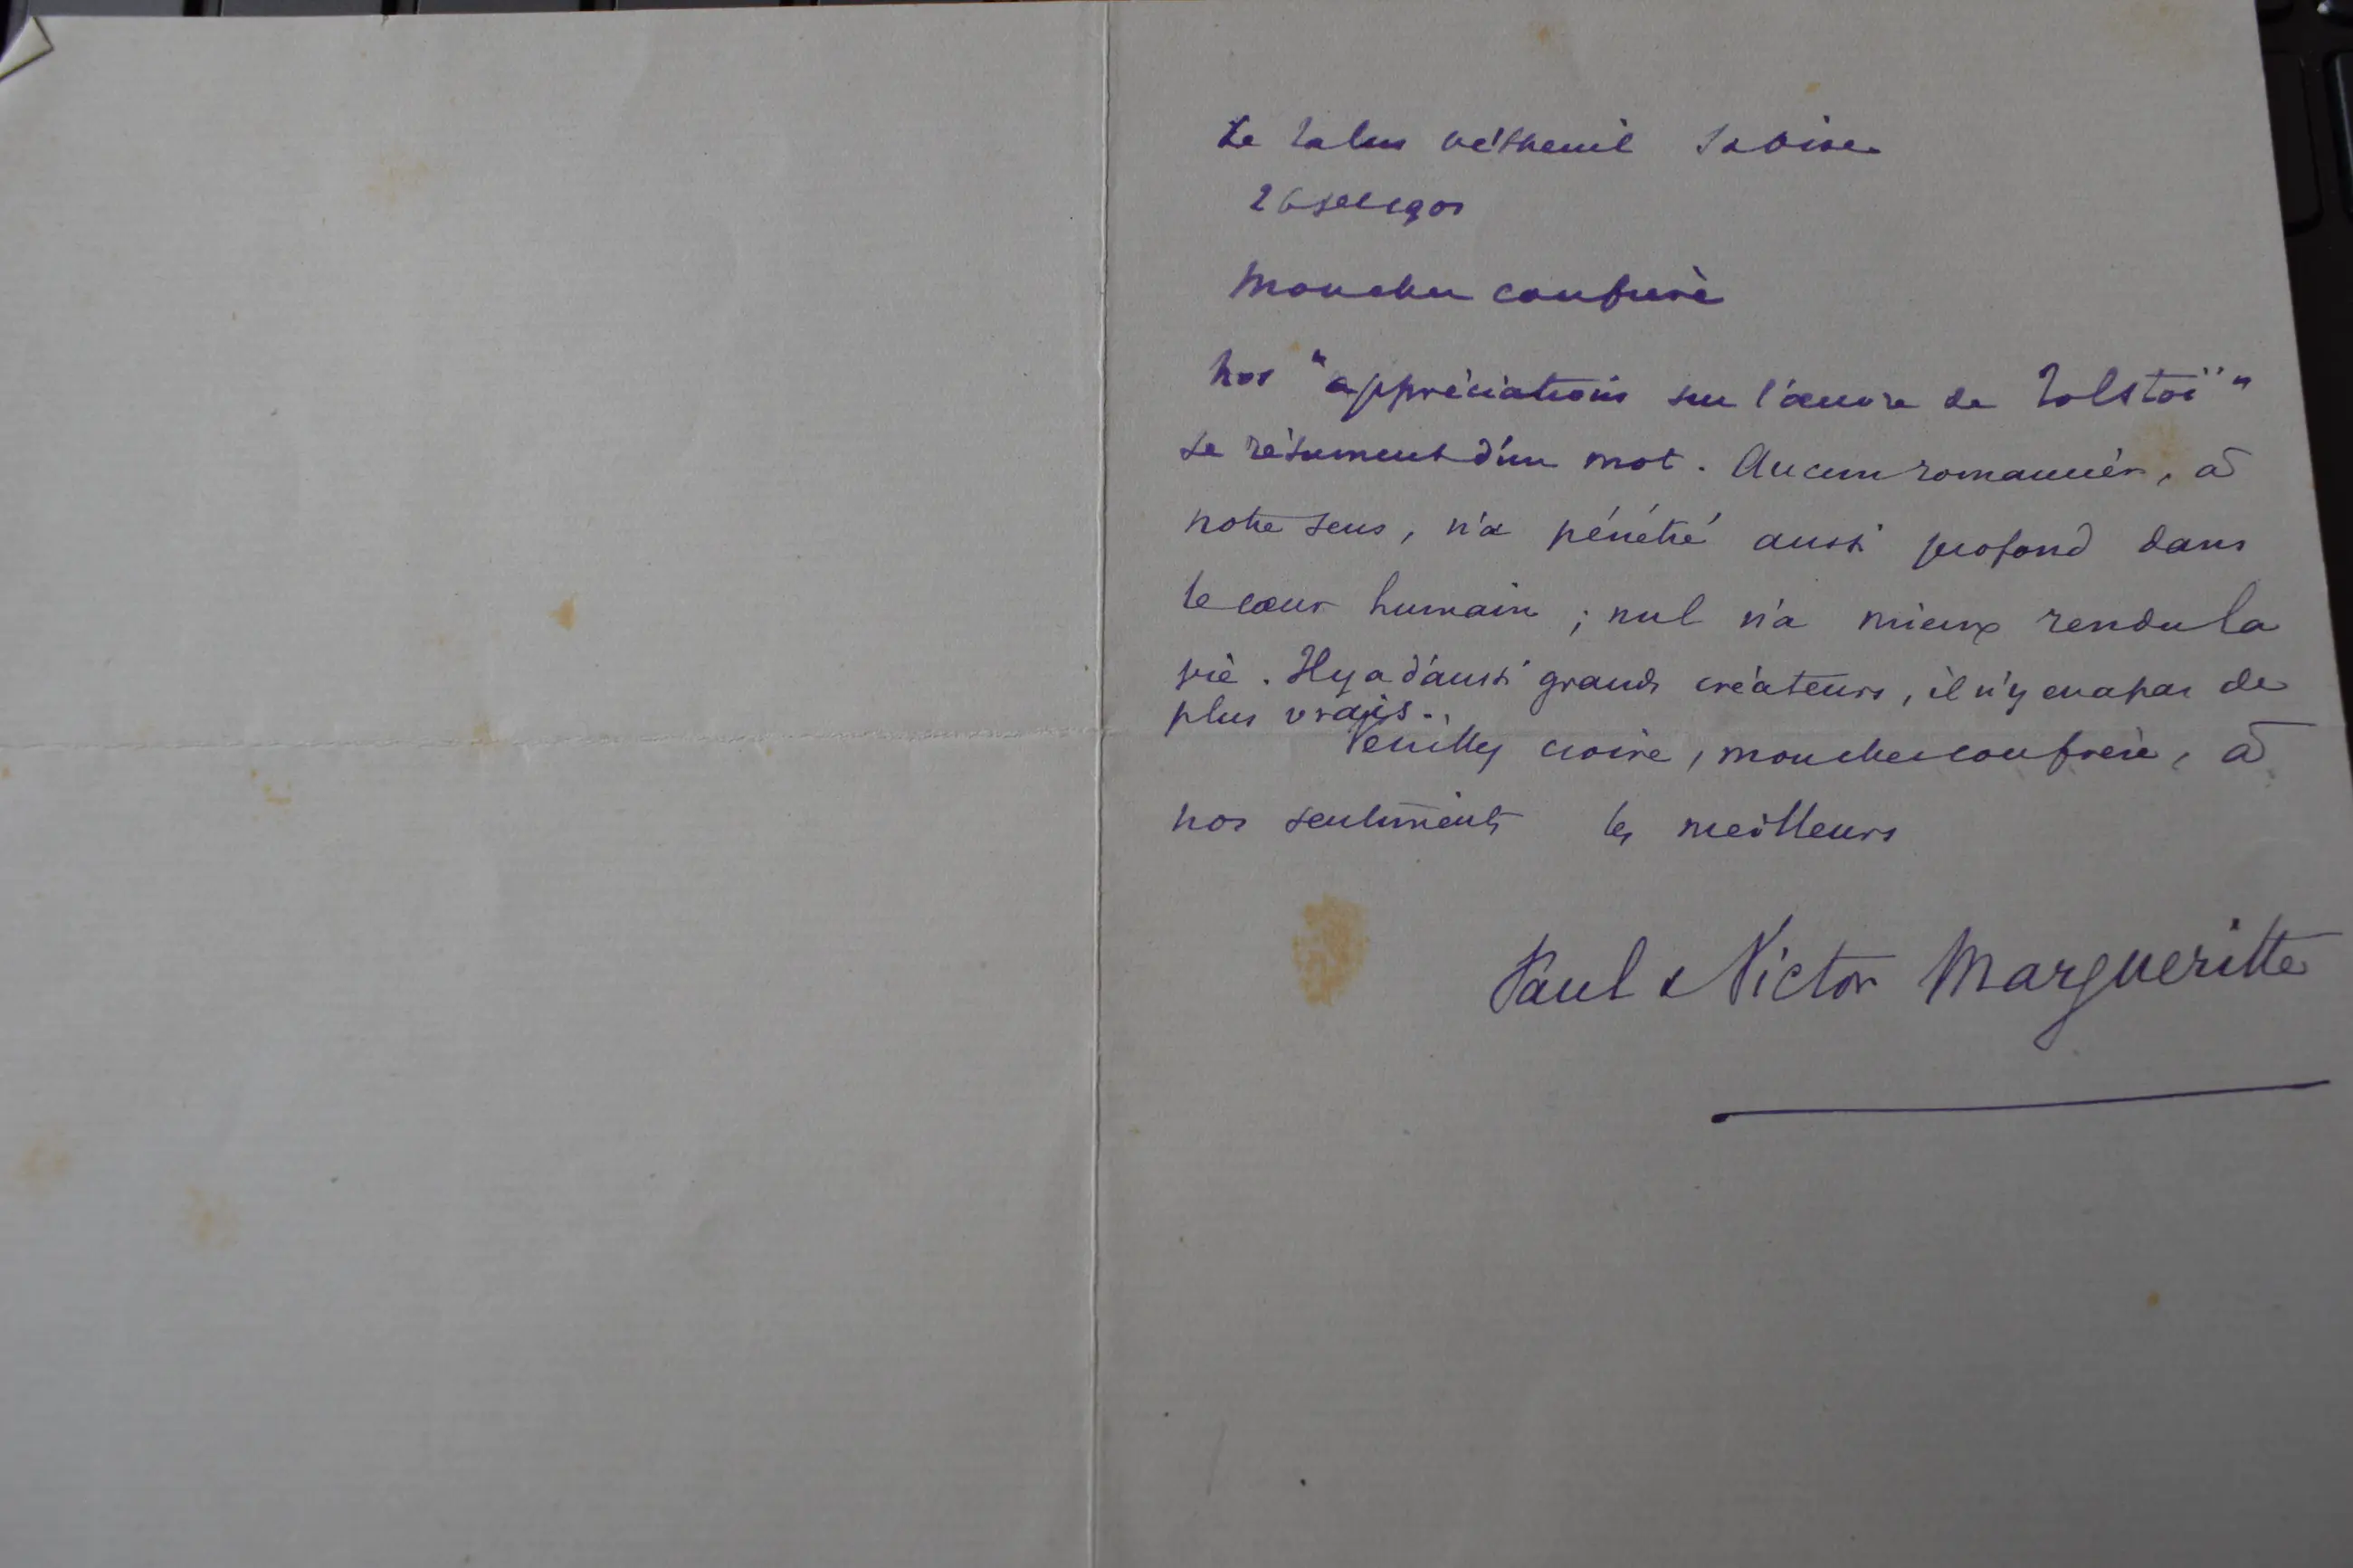 Le Talus Vétheuil S et Oise
26
Mon cher confrère
Nos "appréciations sur l'œuvre de Tolstoï"
se résument d'un mot. Aucun romancier, à
notre sens, n'a pénétré aussi profond dans
le cœur humain ; nul n'a mieux rendu la
vie. Il y a d'aussi grands créateurs, il n'y en a pas de
plus vrais.
Veuillez croire, mon cher confrère, à
nos sentiments les meilleurs
Paul & Victor Margueritte